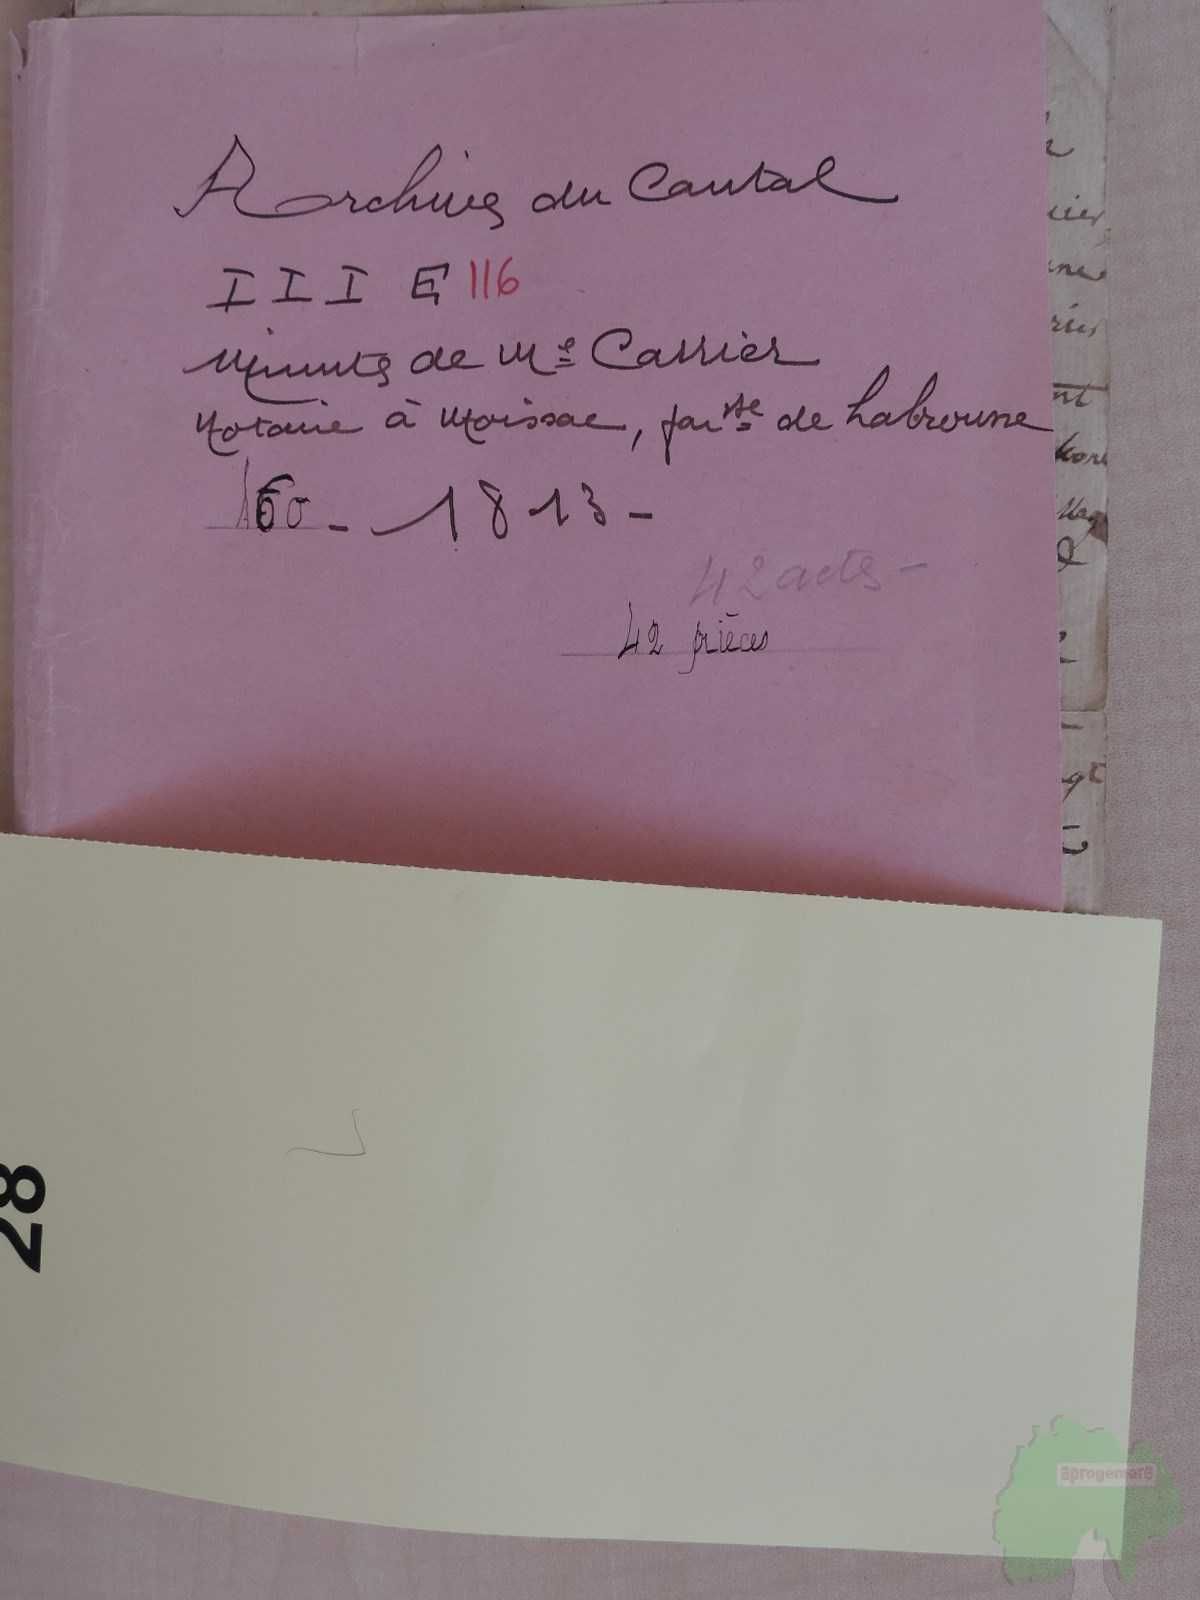 Archives du Cantal
III E 116
Minutes de Me Carrier
Notaire à Moissac, pai sse de Labrousse
160 - 1813 -
42 actes -
42 pièces
28
aprogemere